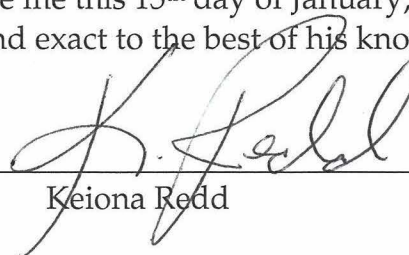 e me this 15th day of January,
nd exact to the best of his kno
K. Redd
Keiona Redd